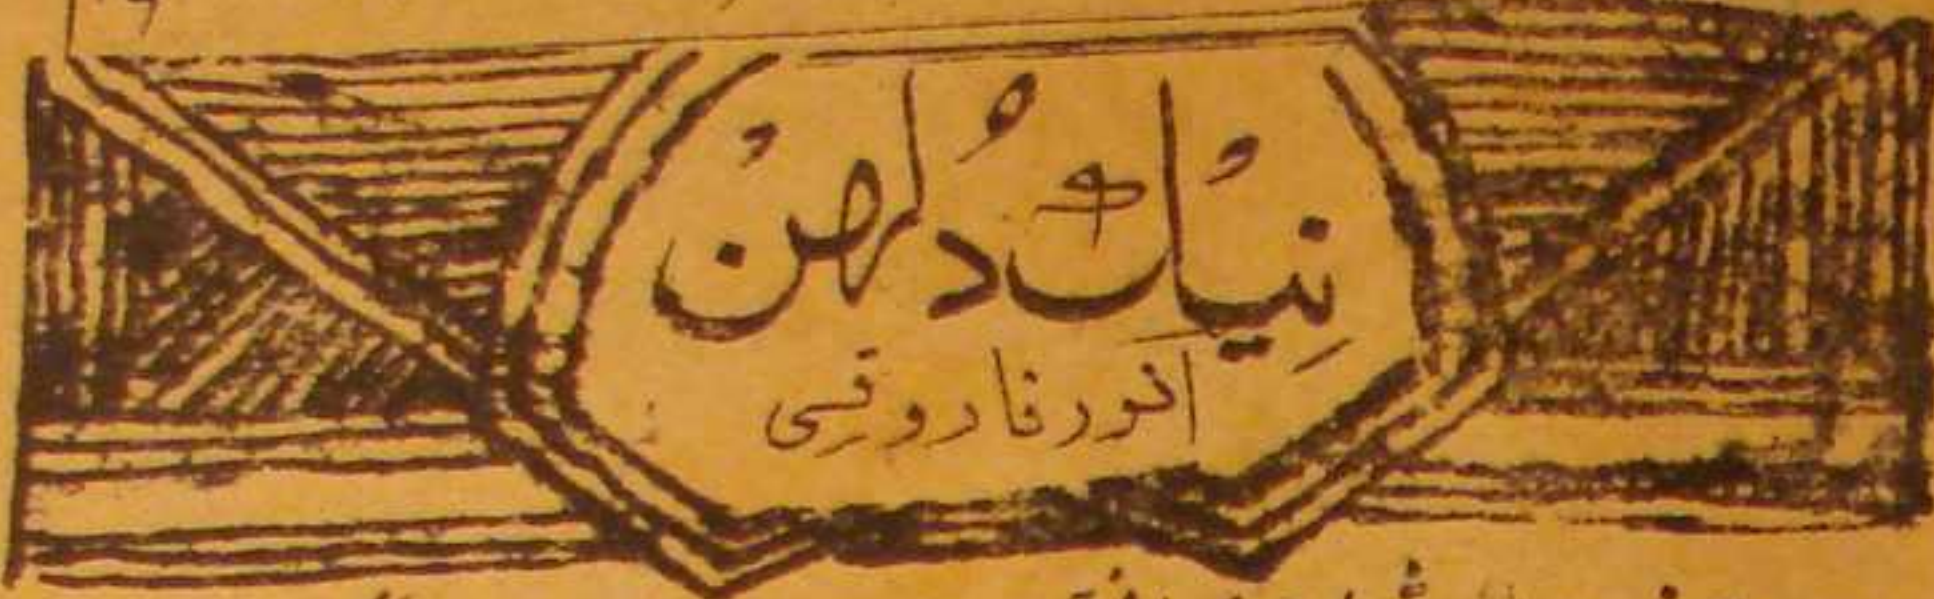 نیک دُلھن
انور فاروقی